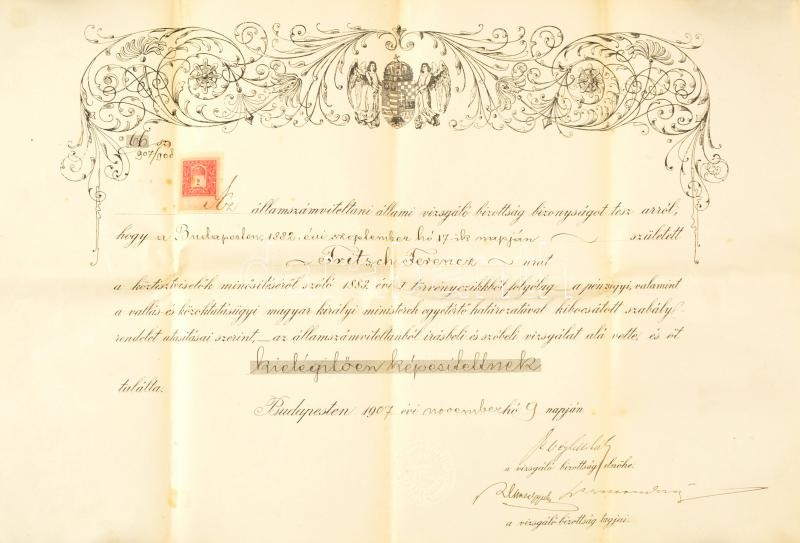 66 sz
907/908
2
Az államszámviteltani állami vizsgáló bizottság bizonyságot tesz arról,
hogy a Budapesten, 1882. évi szeptember hó 17-ik napján született
Fritsch Ferencz urat
a köztisztviselők minősítéséről szóló 1883. évi I törvényczikkből folyólag a pénzügyi, valamint
a vallás és közoktatásügyi magyar királyi miniszterek egyetértő határozatával kibocsátott szabály-
rendelet utasításai szerint, az államszámviteltanból irásbeli és szóbeli vizsgálat alá vette, és őt
kielégítően képesítettnek
találta.
Budapesten 1907 évi november hó 9 napján
a vizsgáló bizottság elnöke.
a vizsgáló bizottság tagjai.